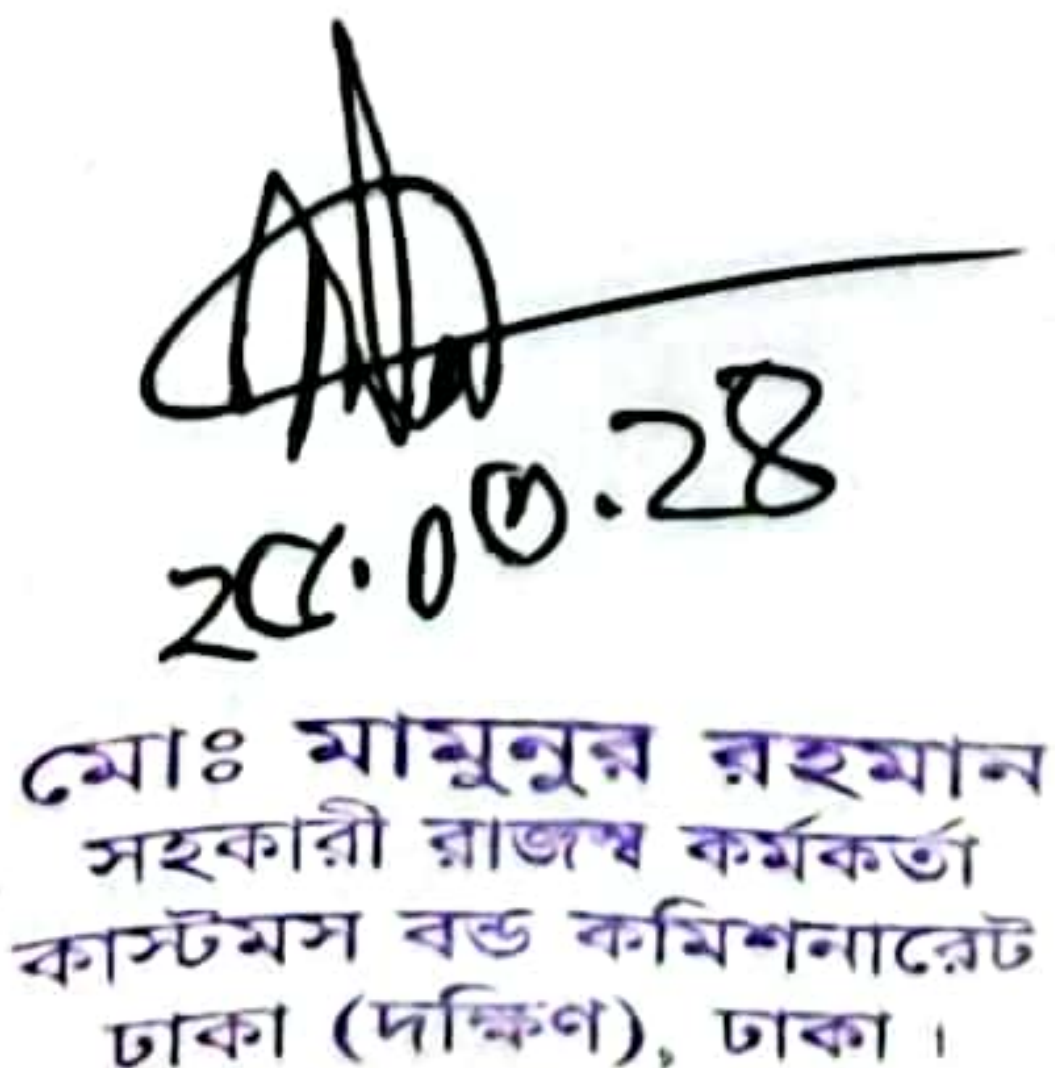 ২৫.০৩.২৪
মোঃ মামুনুর রহমান
সহকারী রাজস্ব কর্মকর্তা
কাস্টমস বন্ড কমিশনারেট
ঢাকা (দক্ষিণ), ঢাকা।